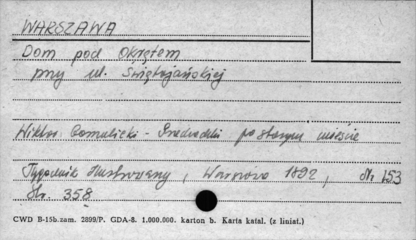 WARSZAWA
Dom pod Okrętem
przy ul. Świętojańskiej
Wiktor Gomulicki - Przechadzki po starym mieście
Tygodnik Illustrowany, Warszawa 1892, Nr 153
Str. 358
CWD B-15b.zam. 2899/P. GDA-8. 1.000.000. karton b. Karta katal. (z liniat.)